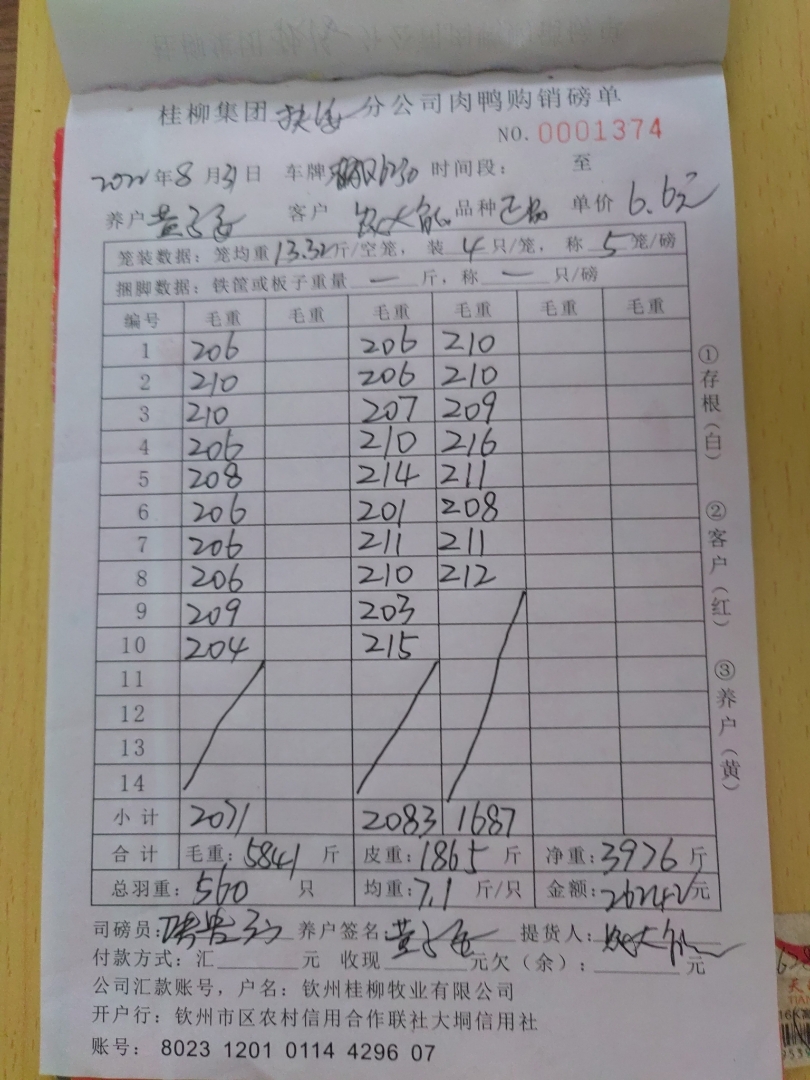 桂柳集团 扶隆 分公司肉鸭购销磅单
NO. 0001374
2022年8月31日 车牌 6230 时间段： 至
养户 黄 客户 品种 正品 单价 6.6元
笼装数据：笼均重13.32斤/空笼， 装 4 只/笼， 称 5 笼/磅
捆脚数据：铁筐或板子重量 一 斤，称 一 只/磅
编号 毛重 毛重 毛重 毛重 毛重 毛重
1 206 206 210
2 210 206 210
3 210 207 209
4 206 210 216
5 208 214 211
6 206 201 208
7 206 211 211
8 206 210 212
9 209 203
10 204 215
11
12
13
14
小计 2071 2083 1687
合计 毛重：5841 斤 皮重：1865 斤 净重：3976 斤
总羽重：560 只 均重：7.1 斤/只 金额：26242元
司磅员： 养户签名：黄 提货人：
付款方式：汇 元 收现 元欠（余）： 元
公司汇款账号，户名：钦州桂柳牧业有限公司
开户行：钦州市区农村信用合作联社大垌信用社
账号： 8023 1201 0114 4296 07
①存根（白）
②客户（红）
③养户（黄）